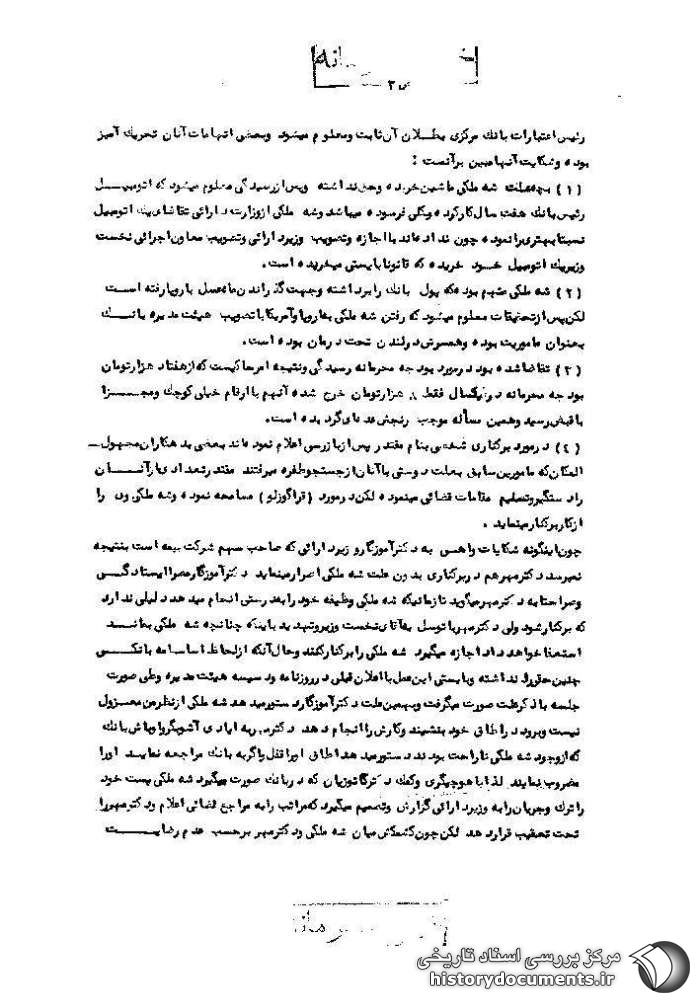 رئیس اعتبارات بانك مركزی بطلان آن ثابت و معلوم میشود وبعضی اتهامات آنان تحریك آمیز
بوده وشكایت آنها مبین برآنست :
(۱) بچه علت شه ملكی ماشین خریده وحق نداشته وپس از رسیدگی معلوم میشود كه اتومبیل
رئیس بانك هفت سال كاركرده وبكلی فرسوده میباشد وشه ملكی ازوزارت دارائی تقاضای یك اتومبیل
نسبتا بهتری را نموده چون نداده اند با اجازه وتصویب وزیر دارائی وتصویب معاون اجرائی نخست
وزیر یك اتومبیل خود خریده كه قانونا بایستی میخریده است .
(۲) شه ملكی متهم بوده كه پول بانك را برداشته وجهت گذراندن ماه عسل باروپا رفته است
لكن پس از تحقیقات معلوم میشود كه رفتن شه ملكی به اروپا وآمریكا با تصویب هیئت مدیره بانك
بعنوان ماموریت بوده وهمسرش در لندن تحت درمان بوده است .
(۳) تقاضا شده بود در مورد بودجه محرمانه رسیدگی ونتیجه امر حاكیست كه از هفتاد هزار تومان
بودجه محرمانه در یكسال فقط ۸ هزار تومان خرج شده آنهم با ارقام خیلی كوچك ومجزا
با قبض رسید وهمین مسأله موجب رنجش عده ای گردیده است .
(٤) در مورد بركناری شخصی بنام مقتدر پس از بازرسی اعلام نموده اند بعضی بدهكاران مجهول
المكان كه مامورین سابق بعلت دوستی با آنان از جستجو طفره میرفتند مقتدر تعدادی از آنان
را دستگیر وتسلیم مقامات قضائی مینموده لكن در مورد (قراگوزلو) مسامحه نموده وشه ملكی وی را
از كار بركنار مینماید .
چون اینگونه شكایات واهی به دكتر آموزگار وزیر دارائی كه صاحب سهم شركت بیمه است بنتیجه
نمیرسد دكتر مهر هم در بركناری بدون علت شه ملكی اصرار مینماید دكتر آموزگار مصرا ایستادگی
وصراحتا به دكتر مهر میگوید تا زمانیكه شه ملكی وظیفه خود را بدرستی انجام میدهد دلیلی ندارد
كه بركنار شود ولی دكتر مهر با توسل به آقای نخست وزیر وتهدید باینكه چنانچه شه ملكی بماند
استعفا خواهد داد اجازه میگیرد شه ملكی را بركنار كنند وحال آنكه از لحاظ اساسنامه بانكی
چنین حقی را نداشته وبایستی این عمل با اعلان قبلی در روزنامه و دسیسه هیئت مدیره وطی صورت
جلسه با ذكر علت صورت میگرفت وبهمین علت دكتر آموزگار دستور میدهد شه ملكی از نظر من معزول
نیست وبرود در اطاق خود بنشیند وكارش را انجام دهد دكتر مهر به ایادی آشوبگر واوباش بانك
كه از وجود شه ملكی ناراحت بودند دستور میدهد اطاق او را قفل واگر به بانك مراجعه نماید او را
مضروب نمایند لذا با هوچیگری وكمك دكتر گاتوزیان كه در بانك صورت میگیرد شه ملكی پست خود
را ترك وجریان را به وزیر دارائی گزارش وتصمیم میگیرد كه مراتب را به مراجع قضائی اعلام ودكتر مهر را
تحت تعقیب قرار دهد لكن چون كشمكش میان شه ملكی ودكتر مهر برحسب عدم رضایت
مركز بررسی اسناد تاریخی
historydocuments.ir